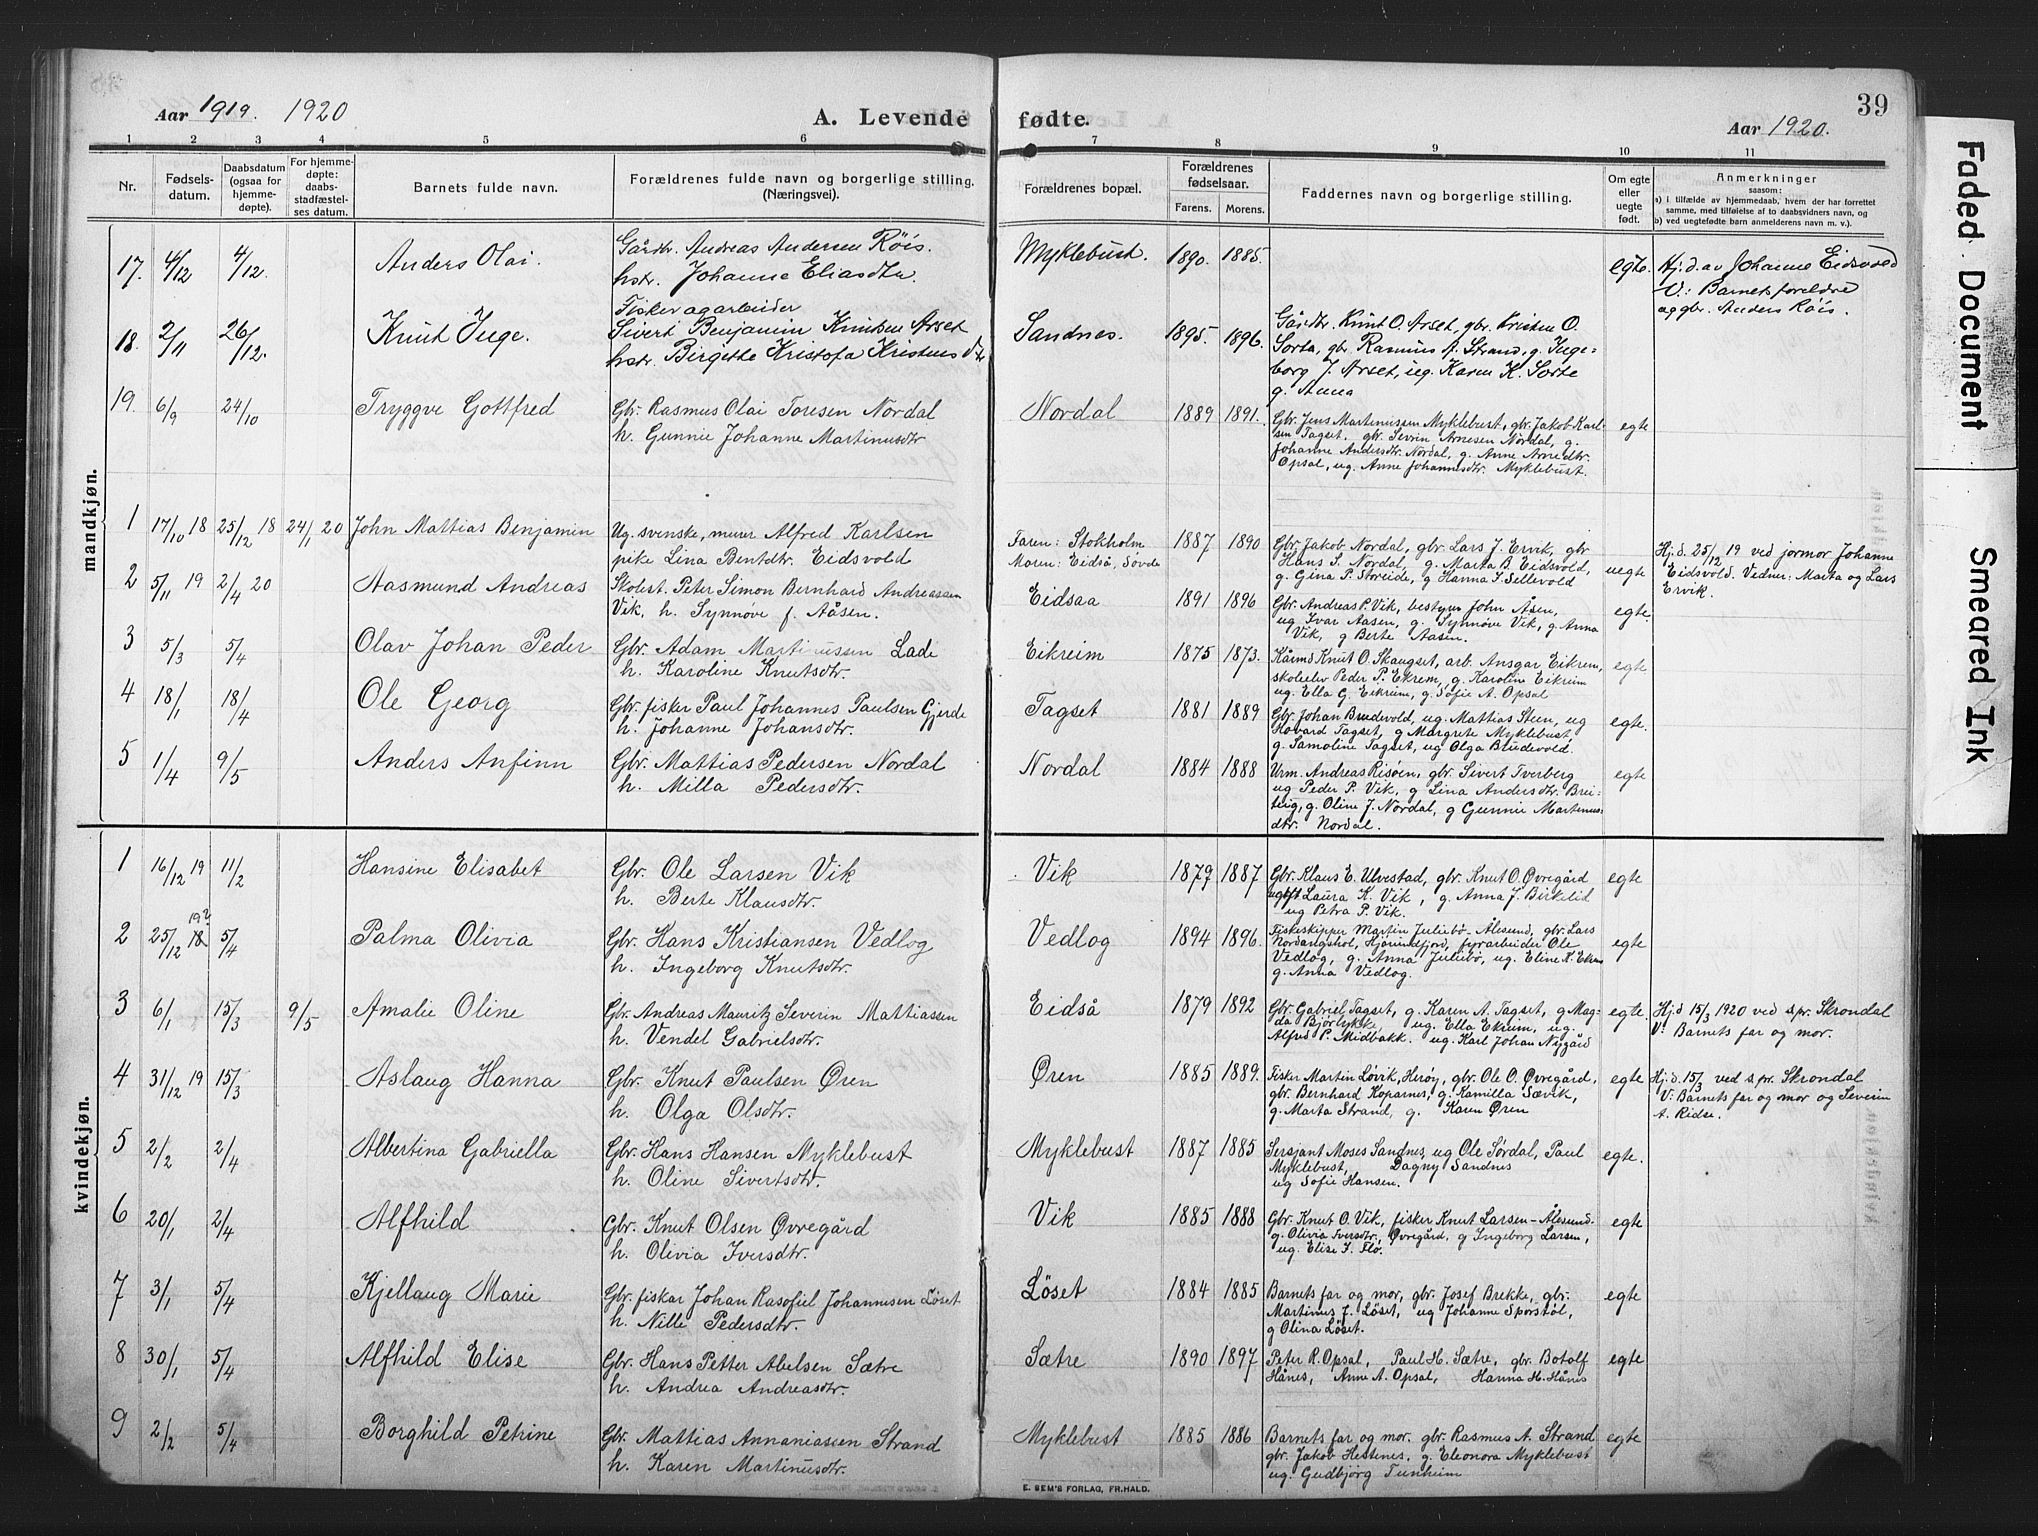 39
Aar 1919. 1920 A. Levende fødte. Aar 1920.
1 2 3 4 5 6 7 8 9 10 11
Nr. Fødselsdatum. Daabsdatum (ogsaa for hjemmedøpte). For hjemmedøpte: daabsstadfæstelses datum. Barnets fulde navn. Forældrenes fulde navn og borgerlige stilling. (Næringsvei). Forældrenes bopæl. Forældrenes fødselsaar. Farens. Morens. Faddernes navn og borgerlige stilling. Om egte eller uegte født. Anmerkninger saasom: a) i tilfælde av hjemmedaab, hvem der har forrettet samme, med tilføielse af to daabsvidners navn, og b) ved uegtefødte barn anmelderens navn m. v.).
mandkjøn.
17. 4/12 4/12. Anders Olai. Gårdbr. Andreas Andersen Röis. Myklebust. 1890. 1885. egte. Hj.d. av Johanne Eidsvold
hstr. Johanne Eliasdtr. V: Barnets foreldre
og gbr. Anders Röis.
18. 2/11 26/12. Knut Inge. Fisker og arbeider Sandnes. 1895. 1896. Gårdbr. Knut O. Arset, gbr. Kristen O.
Sivert Benjamin Knutsen Arset Sorte, gbr Rasmus A. Strand, g. Inge-
hstr. Birgitte Kristofa Kristensdtr borg J. Arset, ug. Karen K. Sorte
g. Anna
19. 6/9 24/10 Tryggve Gottfred Gbr. Rasmus Olai Toresen Nordal Nordal 1889 1891. Gbr. Jens Martinussen Myklebust, gbr. Jakob Karl- egte
h. Gunnie Johanne Martinusdtr sen Tagset, gbr Severin Arnesen Nordal, g.
Johanne Andersdtr. Nordal, g. Anne Arnedtr.
Opsal, ug. Anne Johannesdtr. Myklebust.
1 17/10 18 25/12 18 24/1 20 John Mattias Benjamin Ug. svenske, murer Alfred Karlsen Faren: Stokholm 1887 1890 Gbr. Jakob Nordal, gbr. Lars J. Ervik, gbr uegte Hj.d. 25/12 19 ved jormor Johanne
pike Lina Bentdtr. Eidsvold Moren: Eidså, Sövde Hans S. Nordal, g. Marta B. Eidsvold, Eidsvold. Vidner: Marta og Lars
g. Gina P. Storeide, g Hanna J. Sellevold Ervik.
2 5/11 19 2/4 20 Aasmund Andreas Skolest. Peter Simon Bernhard Andreassen Eidsaa 1891 1896 Gbr. Andreas P. Vik, bestyrer John Åsen, egte.
Vik, h. Synnöve f. Aåsen. ug Ivar Aasen, g. Synnöve Vik, g. Anna
Vik, g Berte Aasen.
3 5/3 5/4 Olav Johan Peder Gbr. Adam Martinussen Lade Eikreim 1875 1873. Kårmd Knut O. Skaugset, arb. Ansgar Eikrem, egte
h. Karoline Knutsdtr. skoleelev Peder P. Ekrem, g Karoline Eikreim
ug. Ella G. Eikreim, g. Sofie A. Opsal
4 18/1 18/4 Ole Georg Gbr. fisker Paul Johannes Paulsen Gjerde Tagset 1881 1889 Gbr. Johan Brudevold, ug. Mattias Steen, ug egte.
h. Johanne Johansdtr. Hovard Tagset, g Margrete Myklebust,
g. Samoline Tagset, ug Olga Brudevold.
5 1/4 9/5 Anders Anfinn Gbr. Mattias Pedersen Nordal Nordal 1884 1888 Urm. Andreas Risöen, gbr. Sivert Tverberg egte
h. Milla Pedersdtr. ug Peder P. Vik, g Lina Andersdtr. Brei-
teig, g. Oline J. Nordal, g Gunnie Martinus-
dtr. Nordal.
kvindekjøn.
1 16/12 19 11/2 Hansine Elisabet Gbr. Ole Larsen Vik Vik 1879 1887 Gbr. Klaus E. Ulvestad, gbr. Knut O. Øvregård egte
h. Berte Klausdtr. Laura K. Vik, g. Anna J. Birkelid
ug Petra P. Vik.
2 25/12 18 19? 5/4 Palma Olivia Gbr. Hans Kristiansen Vedlog Vedlog 1894 1896. Fiskeskipper Martin Juliebø-Ålesund, gbr. Lars egte
h. Ingeborg Knutsdtr. Nordangshol, Hjörundfjord, fyrarbeider Ole
Vedlog, g. Anna Juliebø, ug. Eline K. Ekrem
g. Anna Vedlog.
3 6/1 15/3 9/5 Amalie Oline Gbr. Andreas Mauritz Severin Mattiassen Eidså 1879 1892 Gbr. Gabriel Tagset, g. Karen A. Tagset, g Mag- egte Hj.d 15/3 1920 ved s.pr. Skrondal
h. Vendel Gabrielsdtr. da Bjørlykke, ug. Ella Ekreim, ug. V: Barnets far og mor.
Alfred P. Midbakk. ug. Karl Johan Nygård
4 31/12 19 15/3 Aslaug Hanna Gbr. Knut Paulsen Øren Øren 1885 1889. Fisker Martin Løvik, Herøy, gbr. Ole O. Øvregård, egte Hj.d. 15/3 ved s.pr. Skrondal
h. Olga Olsdtr. gbr. Bernhard Koparnes, g. Kamilla Sævik, V: Barnets far og mor og Severin
g. Marta Strand, g. Karen Øren A. Ridse.
5 2/2 2/4 Albertina Gabriella Gbr. Hans Hansen Myklebust Myklebust 1887 1885 Sersjant Moses Sandnes, ug Ole Sørdal, Paul egte.
h. Oline Sivertsdtr. Myklebust, Dagny Sandnes
ug Sofie Hansen.
6 20/1 2/4 Alfhild Gbr. Knut Olsen Øvregård Vik 1885 1888 Gbr. Knut O. Vik, fisker Knut Larsen-Ålesund. egte
h. Olivia Iversdtr. g. Olivia Iversdtr, Øvregård, g Ingeborg Larsen,
ug. Elise J. Flø.
7 3/1 5/4 Kjellaug Marie Gbr. fiskar Johan Rasofiel Johannesen Løset Løset 1884 1885 Barnets far og mor, gbr. Josef Brekke, gbr. egte
h. Nille Pedersdtr. Martinus J. Løset, ug Johanne Sporstøl,
g Olina Løset.
8 30/1 5/4 Alfhild Elise Gbr. Hans Petter Abelsen Sætre Sætre 1890 1897 Peter R. Opsal, Paul H. Sætre, gbr. Botolf egte
h. Andrea Andreasdtr. Hånes, Anne A. Opsal, Hanna H. Hånes
9 2/2 5/4 Borghild Petrine Gbr. Mattias Annaniassen Strand Myklebust 1885 1886 Barnets far og mor. gbr. Rasmus A. Strand egte
h. Karen Martinusdtr. gbr. Jakob Hestenes, g. Eleonora Myklebust
ug. Gudbjørg Tunheim
E. SEM'S FORLAG, FR.HALD.
Faded Document
Smeared Ink